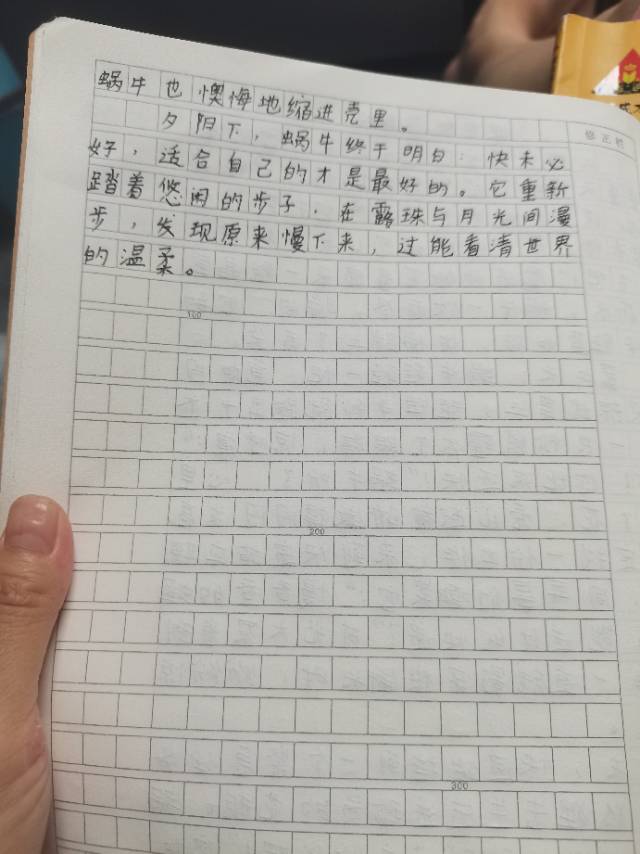 蜗牛也懊悔地缩进壳里。
夕阳下，蜗牛终于明白：快未必
好，适合自己的才是最好的。它重新
踏着悠闲的步子，在露珠与月光间漫
步，发现原来慢下来，过能看清世界
的温柔。
100
200
300